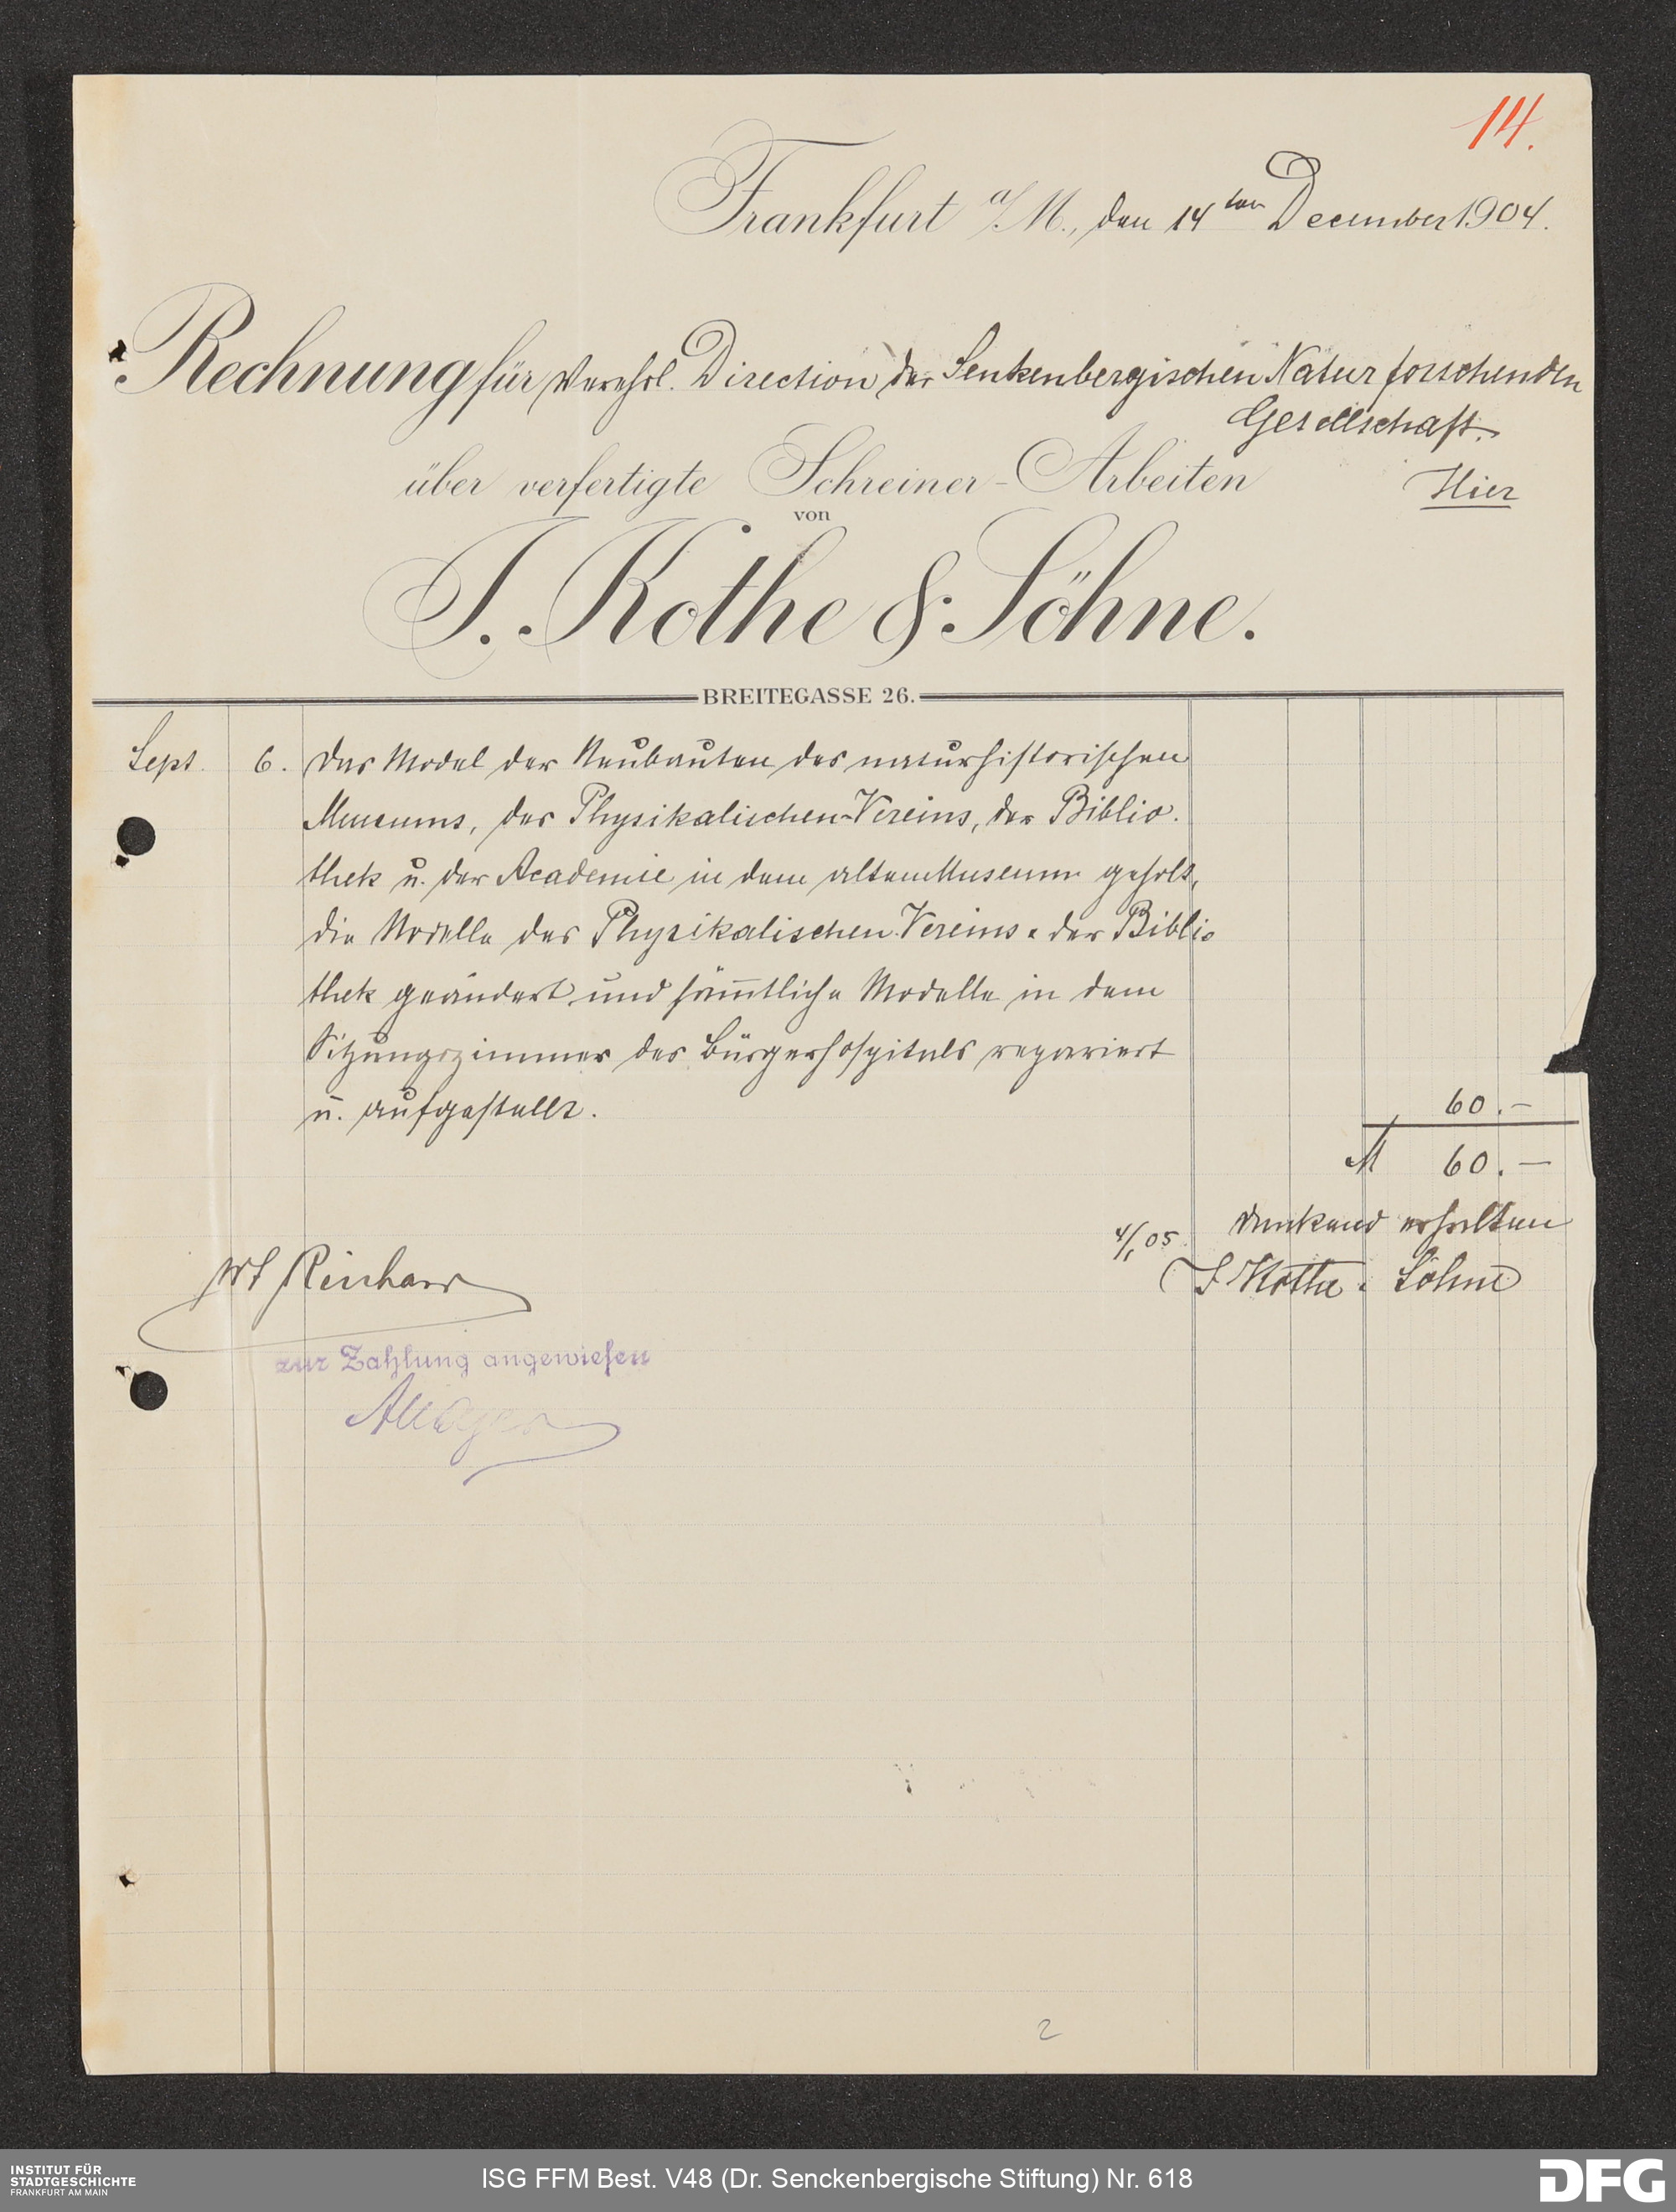 14.
Frankfurt a/M., den 14ten December 1904.
Rechnung für Verehrl. Direction der Senkenbergischen Naturforschenden
Gesellschaft.
über verfertigte Schreiner-Arbeiten
Hier
von
J. Kothe & Söhne.
BREITEGASSE 26.
Sept. 6. Das Model der Neubauten des naturhistorischen
Museums, des Physikalischen-Vereins, der Biblio.
thek u. der Academie in dem alten Museum geholt,
die Modelle des Physikalischen Vereins & der Biblio
thek geändert und säm̅tliche Modelle in dem
Sitzungszimmer des Bürgerhospitals repariert
u. aufgestellt.
60.–
M 60.–
dankend erhalten
4/1 05. J Kothe & Söhne
zur Zahlung angewiesen
2
INSTITUT FÜR
STADTGESCHICHTE
FRANKFURT AM MAIN
ISG FFM Best. V48 (Dr. Senckenbergische Stiftung) Nr. 618
DFG